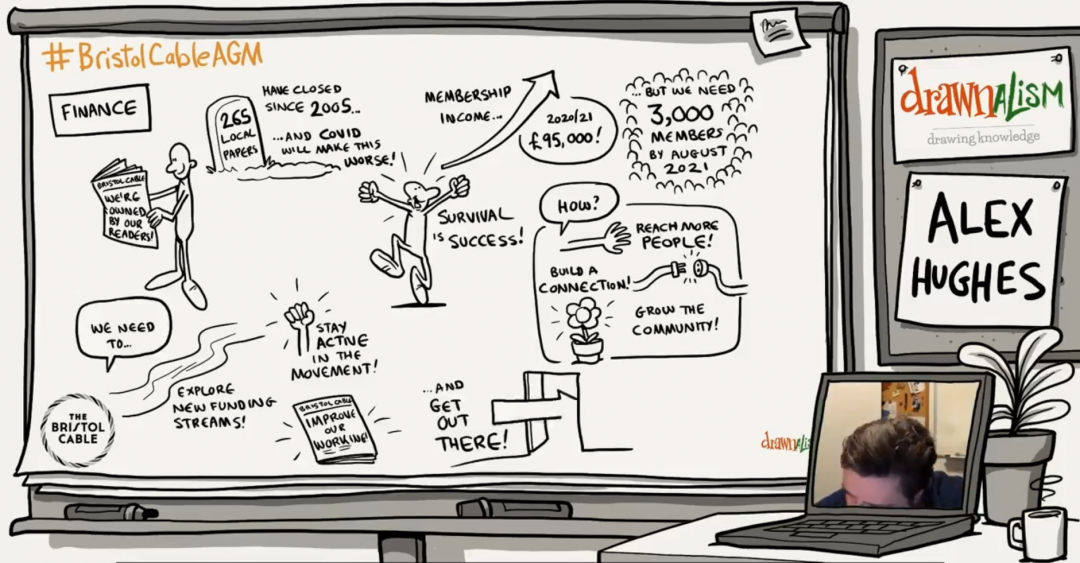 #BristolCableAGM
FINANCE
265
LOCAL
PAPERS
HAVE CLOSED
SINCE 2005...
...AND COVID
WILL MAKE THIS
WORSE!
BRISTOL CABLE
WE'RE
OWNED
BY OUR
READERS!
MEMBERSHIP
INCOME...
2020/21
£95,000!
...BUT WE NEED
3,000
MEMBERS
BY AUGUST
2021
SURVIVAL
IS SUCCESS!
HOW?
REACH MORE
PEOPLE!
BUILD A
CONNECTION!
GROW THE
COMMUNITY!
WE NEED
TO...
EXPLORE
NEW FUNDING
STREAMS!
STAY
ACTIVE
IN THE
MOVEMENT!
BRISTOL CABLE
IMPROVE
OUR
WORKING!
...AND
GET
OUT
THERE!
THE
BRISTOL
CABLE
drawnalis
drawnalism
drawing knowledge
ALEX
HUGHES